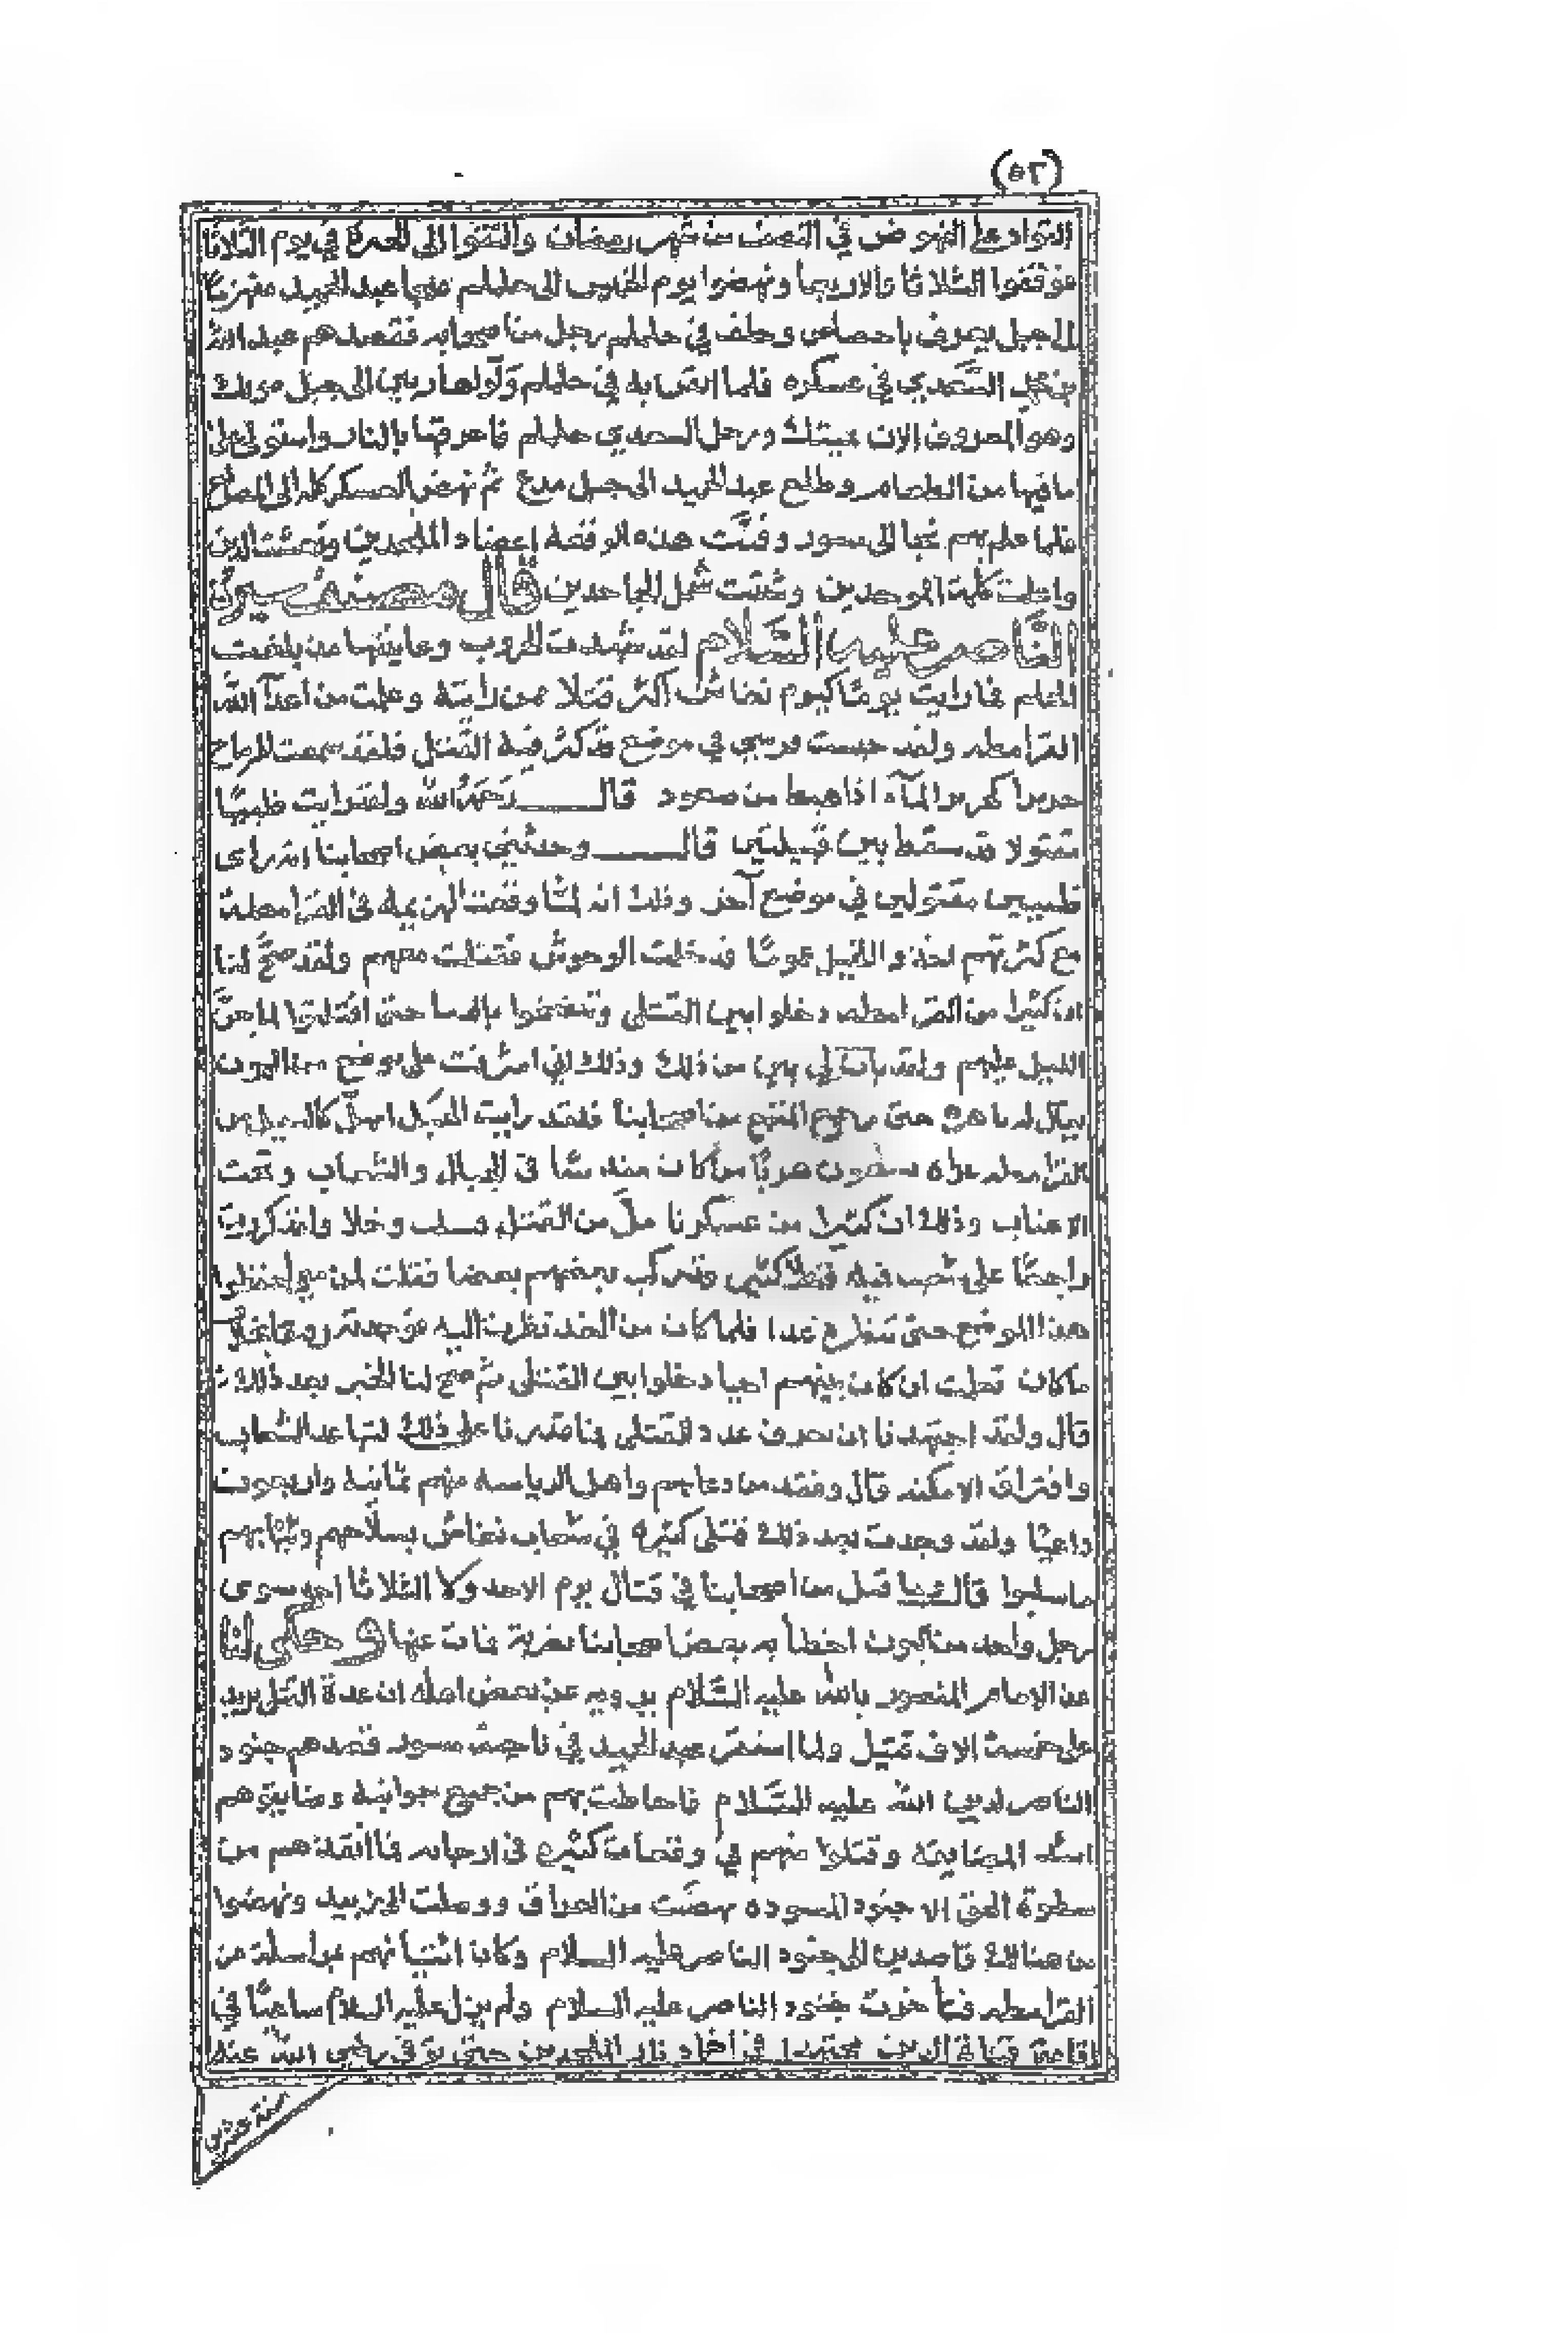 القواد على النهوض في النصف من شهر رمضان والتقوا الى العرة في يوم الثلاثا
فوقفوا الثلاثا والاربعا ونهضوا يوم الخميس الى حلملم منها عبد الحميد منهزما
الى جبل يعرف وخلف في حلملم رجل من اصحابه فقصدهم عبد الله
بن محمد السعدي في عسكره فلما اقبل به في حلملم ولوا هاربين الى جبل
وهو المعروف الان ودخل السعدي حلملم فاحرقها بالنار واستولى على
ما فيها من الطعام وطلع عبد الحميد الى جبل مدع ثم نهض العسكر كله الى المصانع
فلما علم بهم نجا الى مسور وفتت هذه الوقعة اعضاد الملحدين
واعلت كلمة الموحدين وشتت شمل الجاحدين قال مصنف سيرة
الناصر عليه السلام لقد شهدت الحروب وعاينتها منذ بلغت
الحلم فما رايت يوما كيوم نغاش اكثر قتلا ممن رايته وعلمت من اعدآ الله
القرامطة ولقد حبست فرسي في موضع قد كثر فيه القتل فلقد سمعت للرماح
خريرا كخرير المآء اذا هبط من صعود قال رحمه الله ولقد رايت ظبيا
مقتولا قد سقط بين قتيلين قال وحدثني بعض اصحابنا انه راى
ظبيين مقتولين في موضع آخر وذلك انه لما وقعت الهزيمة في القرامطة
مع كثرتهم اخذوا الخيل عموما فدخلت الوحوش فقتلت معهم ولقد صح لنا
ان كثيرا من القرامطة دخلوا بين القتلى وتلطخوا بالدما حتى افتلتوا لما جن
الليل عليهم ولقد بان لي يقين من ذلك وذلك اني اشرفت على موضع من البون
يقال له حتى رجع المقنع من اصحابنا فلقد رايت الجبل اسفل كالسيل من
القرامطة هربا من كان منهم في الجبال والشعاب وتحت
الاعناب وذلك ان كثيرا من عسكرنا مل من القتل وسلب وخلا ولقد كررت
راجعا على شعب فيه قتلا كثير وقد ركب بعضهم بعضا فقلت لمن معي احفظوا
هذا الموضع حتى ننظره غدا فلما كان من الغد نظرت اليه فوجدته
ما كان فعلمت ان كان بينهم احيا دخلوا بين القتلى ثم صح لنا الخبر بعد ذلك
قال ولقد اجتهدنا ان نعرف عدد القتلى فما قدرنا على ذلك لتباعد الشعاب
وافتراق الامكنة قال وفقد من دعاتهم واهل الرياسة منهم ثمانية واربعون
داعيا ولقد وجدت بعد ذلك قتلى كثيرة في شعاب نغاش بسلاحهم وثيابهم
ما سلبوا قال وما قتل من اصحابنا في قتال يوم الاحد ولا الثلاثا احد سوى
رجل واحد من البون اخطا به بعض اصحابنا بضربة فمات عنها وحكى لنا
عن الامام المنصور بالله عليه السلام يرويه عن بعض اهله ان عدة القتل يزيد
على خمسة الاف قتيل ولما استقر عبد الحميد في ناحية مسور قصدهم جنود
الناصر لدين الله عليه السلام فاحاطت بهم من جميع جوانبه وضايقوهم
اشد المضايقة وقتلوا منهم في وقعات كثيرة في ارجائه فما انقذهم من
سطوة الحق الا جنود المسودة نهضت من العراق ووصلت الى زبيد ونهضوا
من هنالك قاصدين الى جنود الناصر عليه السلام وكان اتيانهم بمراسلة من
القرامطة فتاخرت جنود الناصر عليه السلام ولم يزل عليه السلام ساعيا في
اقامة قناة الدين مجتهدا في اخماد نار الملحدين حتى توفي رضي الله عنه
سنة عشرين